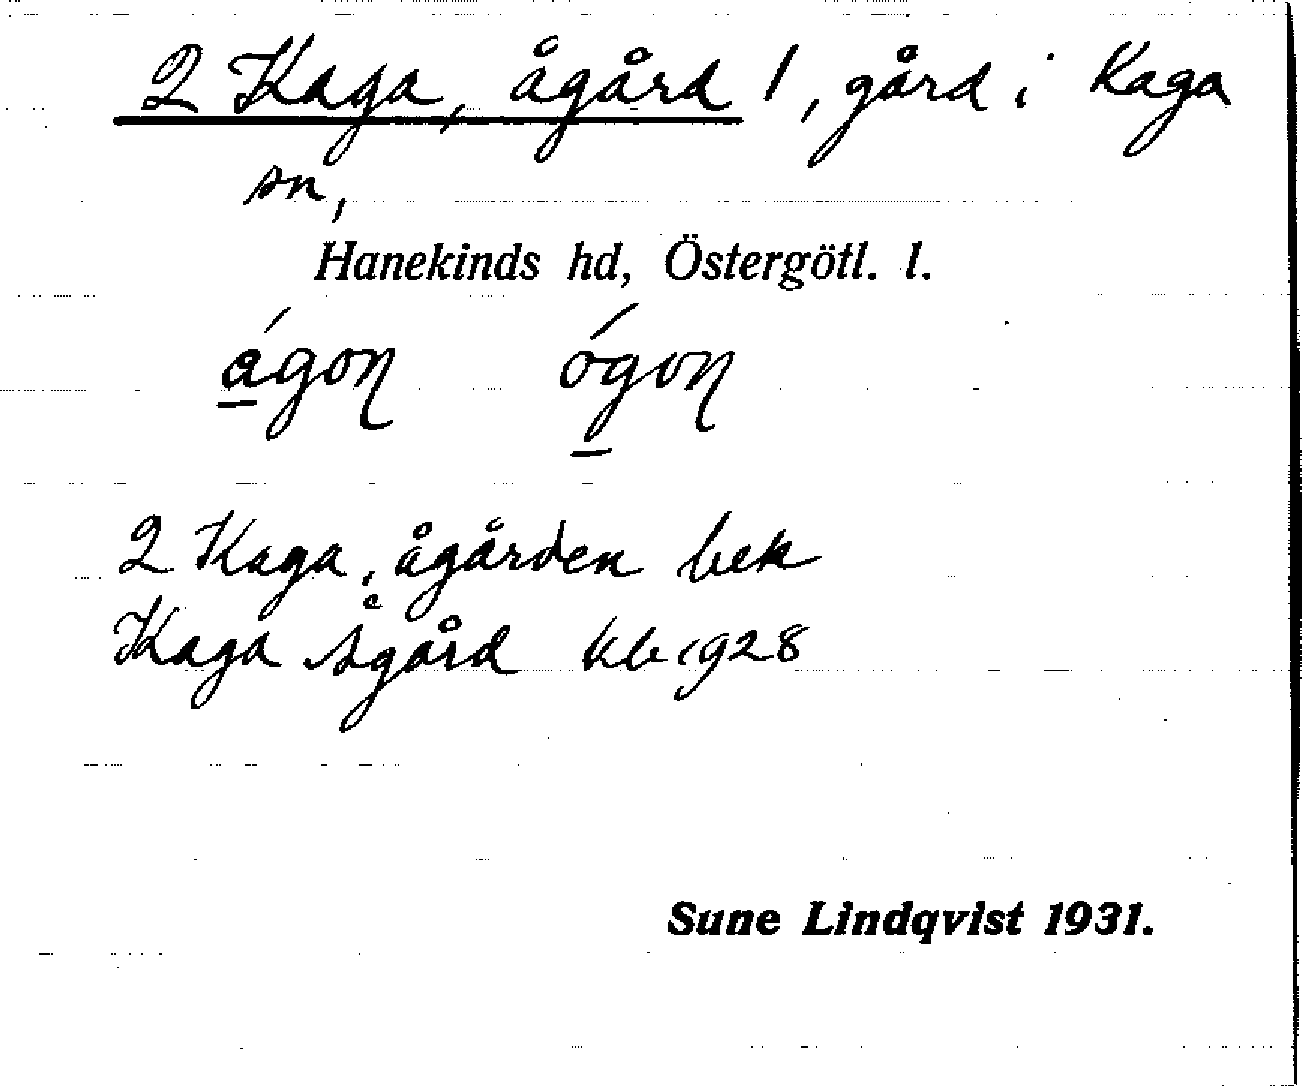 2 Kaga, ågård 1, gård i Kaga
sn,
Hanekinds hd, Östergötl. l.
ágoɳ ógoɳ
2 Kaga, ågården bek
Kaga Ågård kb 1928
Sune Lindqvist 1931.